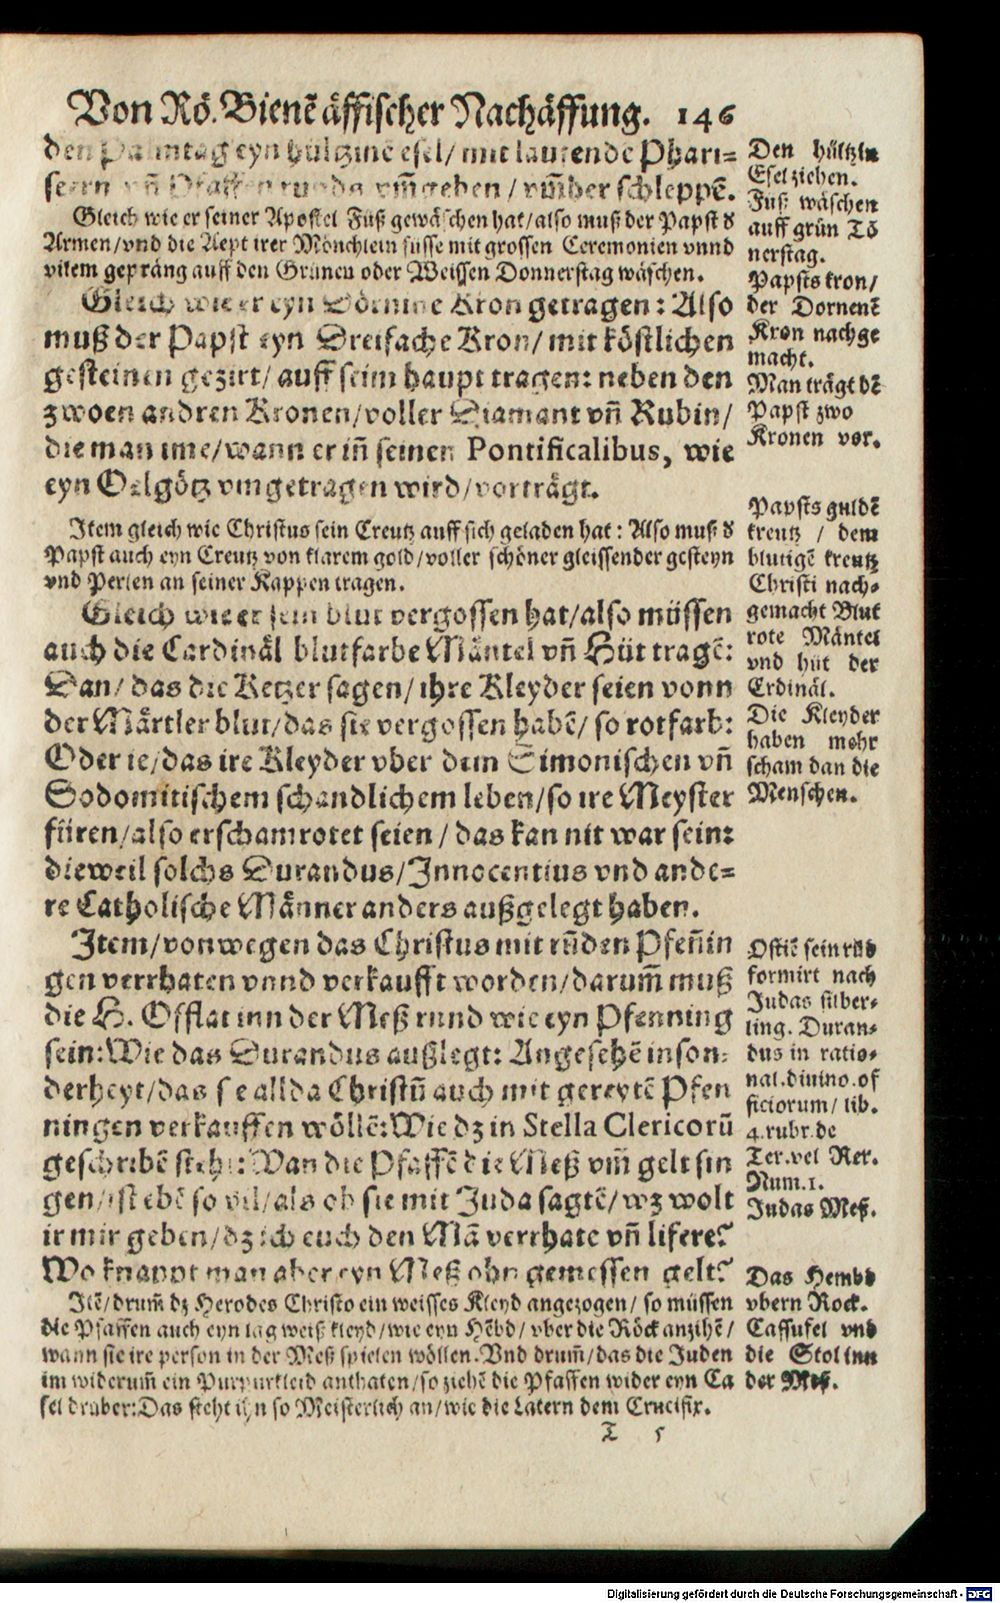 Von Rö. Bienē äffischer Nachäffung. 146
den Palmtag eyn hültzinē esel/ mit lauffende Phari=
seern vñ Pfaffen runda vm̄geben / vm̄her schleppē.
Gleich wie er seiner Apostel Füß gewäschen hat/also muß der Papst d
Armen/vnd die Aept irer Mönchlein füsse mit grossen Ceremonien vnnd
vilem gepräng auff den Grünen oder Weissen Donnerstag wäschen.
Gleich wie er eyn Dörnine Kron getragen: Also
muß der Papst eyn Dreifache Kron/ mit köstlichen
gesteinen gezirt/ auff seim haupt tragen: neben den
zwoen andren Kronen/voller Diamant vñ Rubin/
die man ime/wann er iñ seinen Pontificalibus, wie
eyn Oelgötz vmgetragen wird/vorträgt.
Item gleich wie Christus sein Creutz auff sich geladen hat: Also muß d
Papst auch eyn Creutz von klarem gold/voller schöner gleissender gesteyn
vnd Perlen an seiner Kappen tragen.
Gleich wie er sein blut vergossen hat/also müssen
auch die Cardinäl blutfarbe Mäntel vñ Hüt tragē:
Dan/ das die Ketzer sagen/ ihre Kleyder seien vonn
der Märtler blut/das sie vergossen habē/ so rotfarb:
Oder ie/das ire Kleyder vber dem Simonischen vñ
Sodomitischem schandlichem leben/so ire Meyster
füren/also erschamrotet seien / das kan nit war sein:
dieweil solchs Durandus/Innocentius vnd ande=
re Catholische Männer anders außgelegt haben.
Item/von wegen das Christus mit rūden Pfeñin
gen verrhaten vnnd verkaufft worden/darum̄ muß
die H. Offlat inn der Meß rund wie eyn Pfenning
sein: Wie das Durandus außlegt: Angesehē inson=
derheyt/das sie allda Christū auch mit gereytē Pfen
ningen verkauffen wöllē: Wie dz in Stella Clericorū
geschribē steht: Wan die Pfaffē die Meß vm̄ gelt sin
gen/ist ebē so vil/als ob sie mit Juda sagtē/ wz wolt
ir mir geben/dz ich euch den Mā verrhate vñ lifere?
Wo knappt man aber eyn Meß ohn gemessen gelt?
Itē/drum̄ dz Herodes Christo ein weisses Kleyd angezogen/ so müssen
die Pfaffen auch eyn lag weiß kleyd/wie eyn Hēbd/ vber die Röck anzihē/
wann sie ire person in der Meß spielen wöllen. Vnd drum̄/das die Juden
im widerum̄ ein Purpurkleid anthaten/so ziehē die Pfaffen wider eyn Ca
sel drüber: Das steht ihn so Meisterlich an/wie die Latern dem Crucifix.
T 5
Den hültzin
Esel ziehen.
Füß wäschen
auff grün Tō
nerstag.
Papsts kron/
der Dornenē
Kron nachge
macht.
Man trägt dē
Papst zwo
Kronen vor.
Papsts guldē
kreutz / dem
blutigē kreutz
Christi nach=
gemacht Blut
rote Mäntel
vnd hüt der
Crdinäl.
Die Kleyder
haben mehr
scham dan die
Menschen.
Ostiē sein rūd
formirt nach
Judas silber=
ling. Duran=
dus in ratio=
nal. diuino. of
ficiorum/ lib.
4. rubr. de
Ter. vel Rer.
Num. 1.
Judas Meß.
Das Hembd
vbern Rock.
Cassufel vnd
die Stol inn
der Meß.
Digitalisierung gefördert durch die Deutsche Forschungsgemeinschaft - DFG